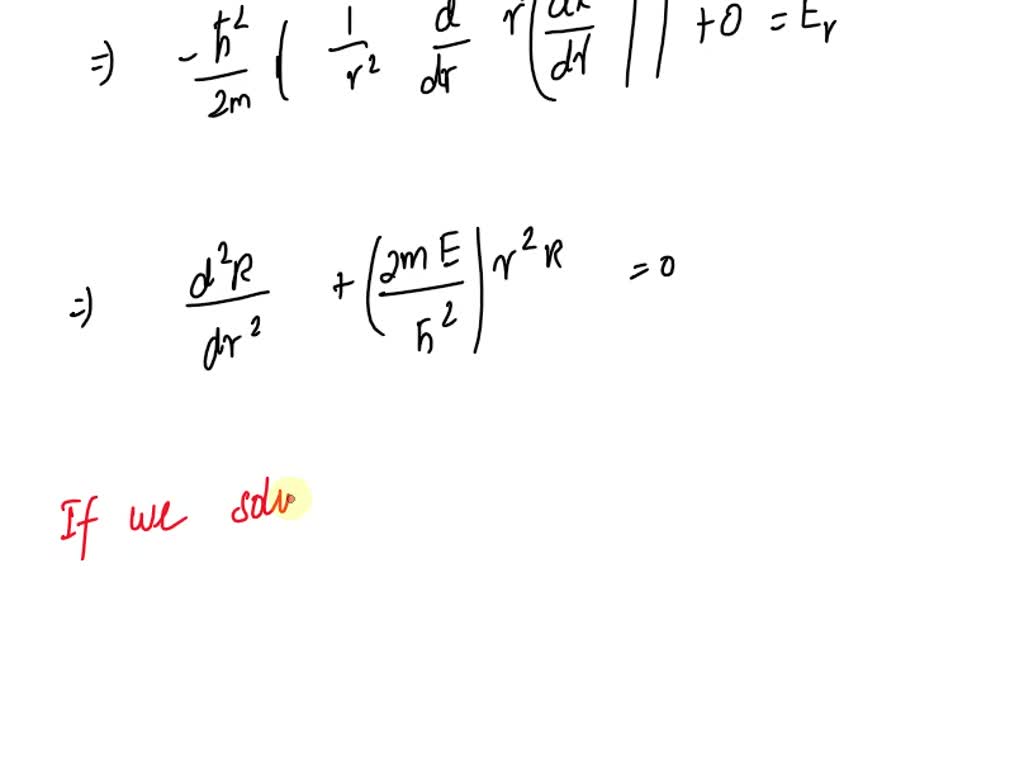 ⇒) -ℏ²/2m ( 1/r² d/dr r(dR/dr)) + 0 = Er
⇒) d²R/dr² + (2mE/ℏ²) r² R = 0
If we solv